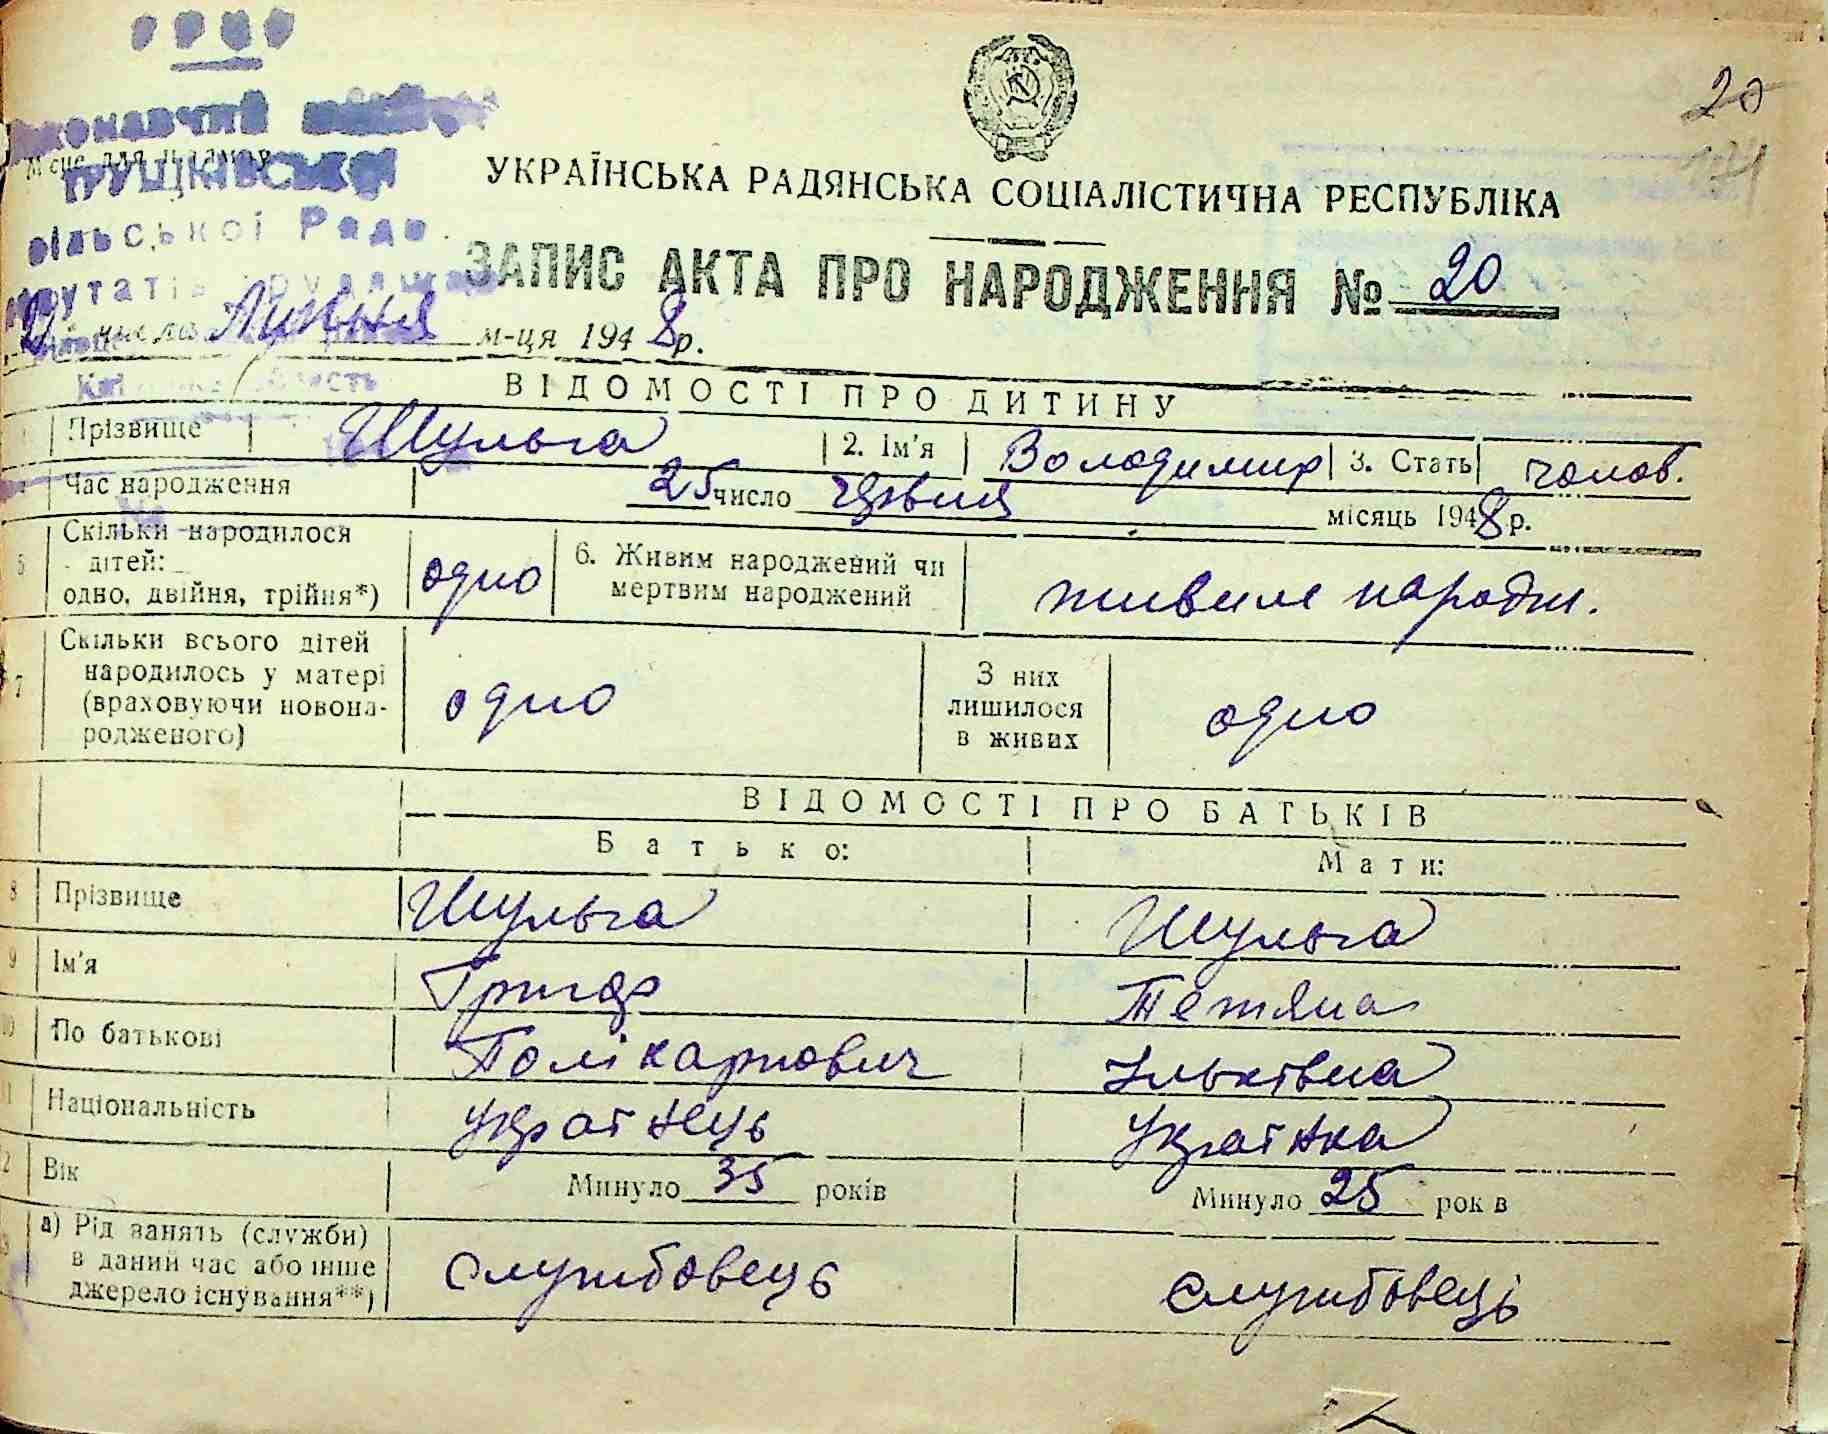 УРСР
20
Виконавчий комітет
Місце для штампа
ТРУШКІВСЬКОЇ
сільської Ради
депутатів трудящих
УКРАЇНСЬКА РАДЯНСЬКА СОЦІАЛІСТИЧНА РЕСПУБЛІКА
ЗАПИС АКТА ПРО НАРОДЖЕННЯ № 20
числа Липня м-ця 1948 р.
область
ВІДОМОСТІ ПРО ДИТИНУ
Прізвище Шульга 2. Ім'я Володимир 3. Стать чолов.
Час народження 25 число червня місяць 1948 р.
5 Скільки народилося дітей: одно, двійня, трійня*) одно 6. Живим народжений чи мертвим народжений живим народж.
7 Скільки всього дітей народилось у матері (враховуючи новонародженого) одно З них лишилося в живих одно
ВІДОМОСТІ ПРО БАТЬКІВ
Батько: Мати:
8 Прізвище Шульга Шульга
9 Ім'я Григор Тетяна
10 По батькові Полікарпович Ільківна
11 Національність Українець Українка
12 Вік Минуло 35 років Минуло 25 рок в
13 а) Рід занять (служби) в даний час або інше джерело існування**) Службовець Службовець